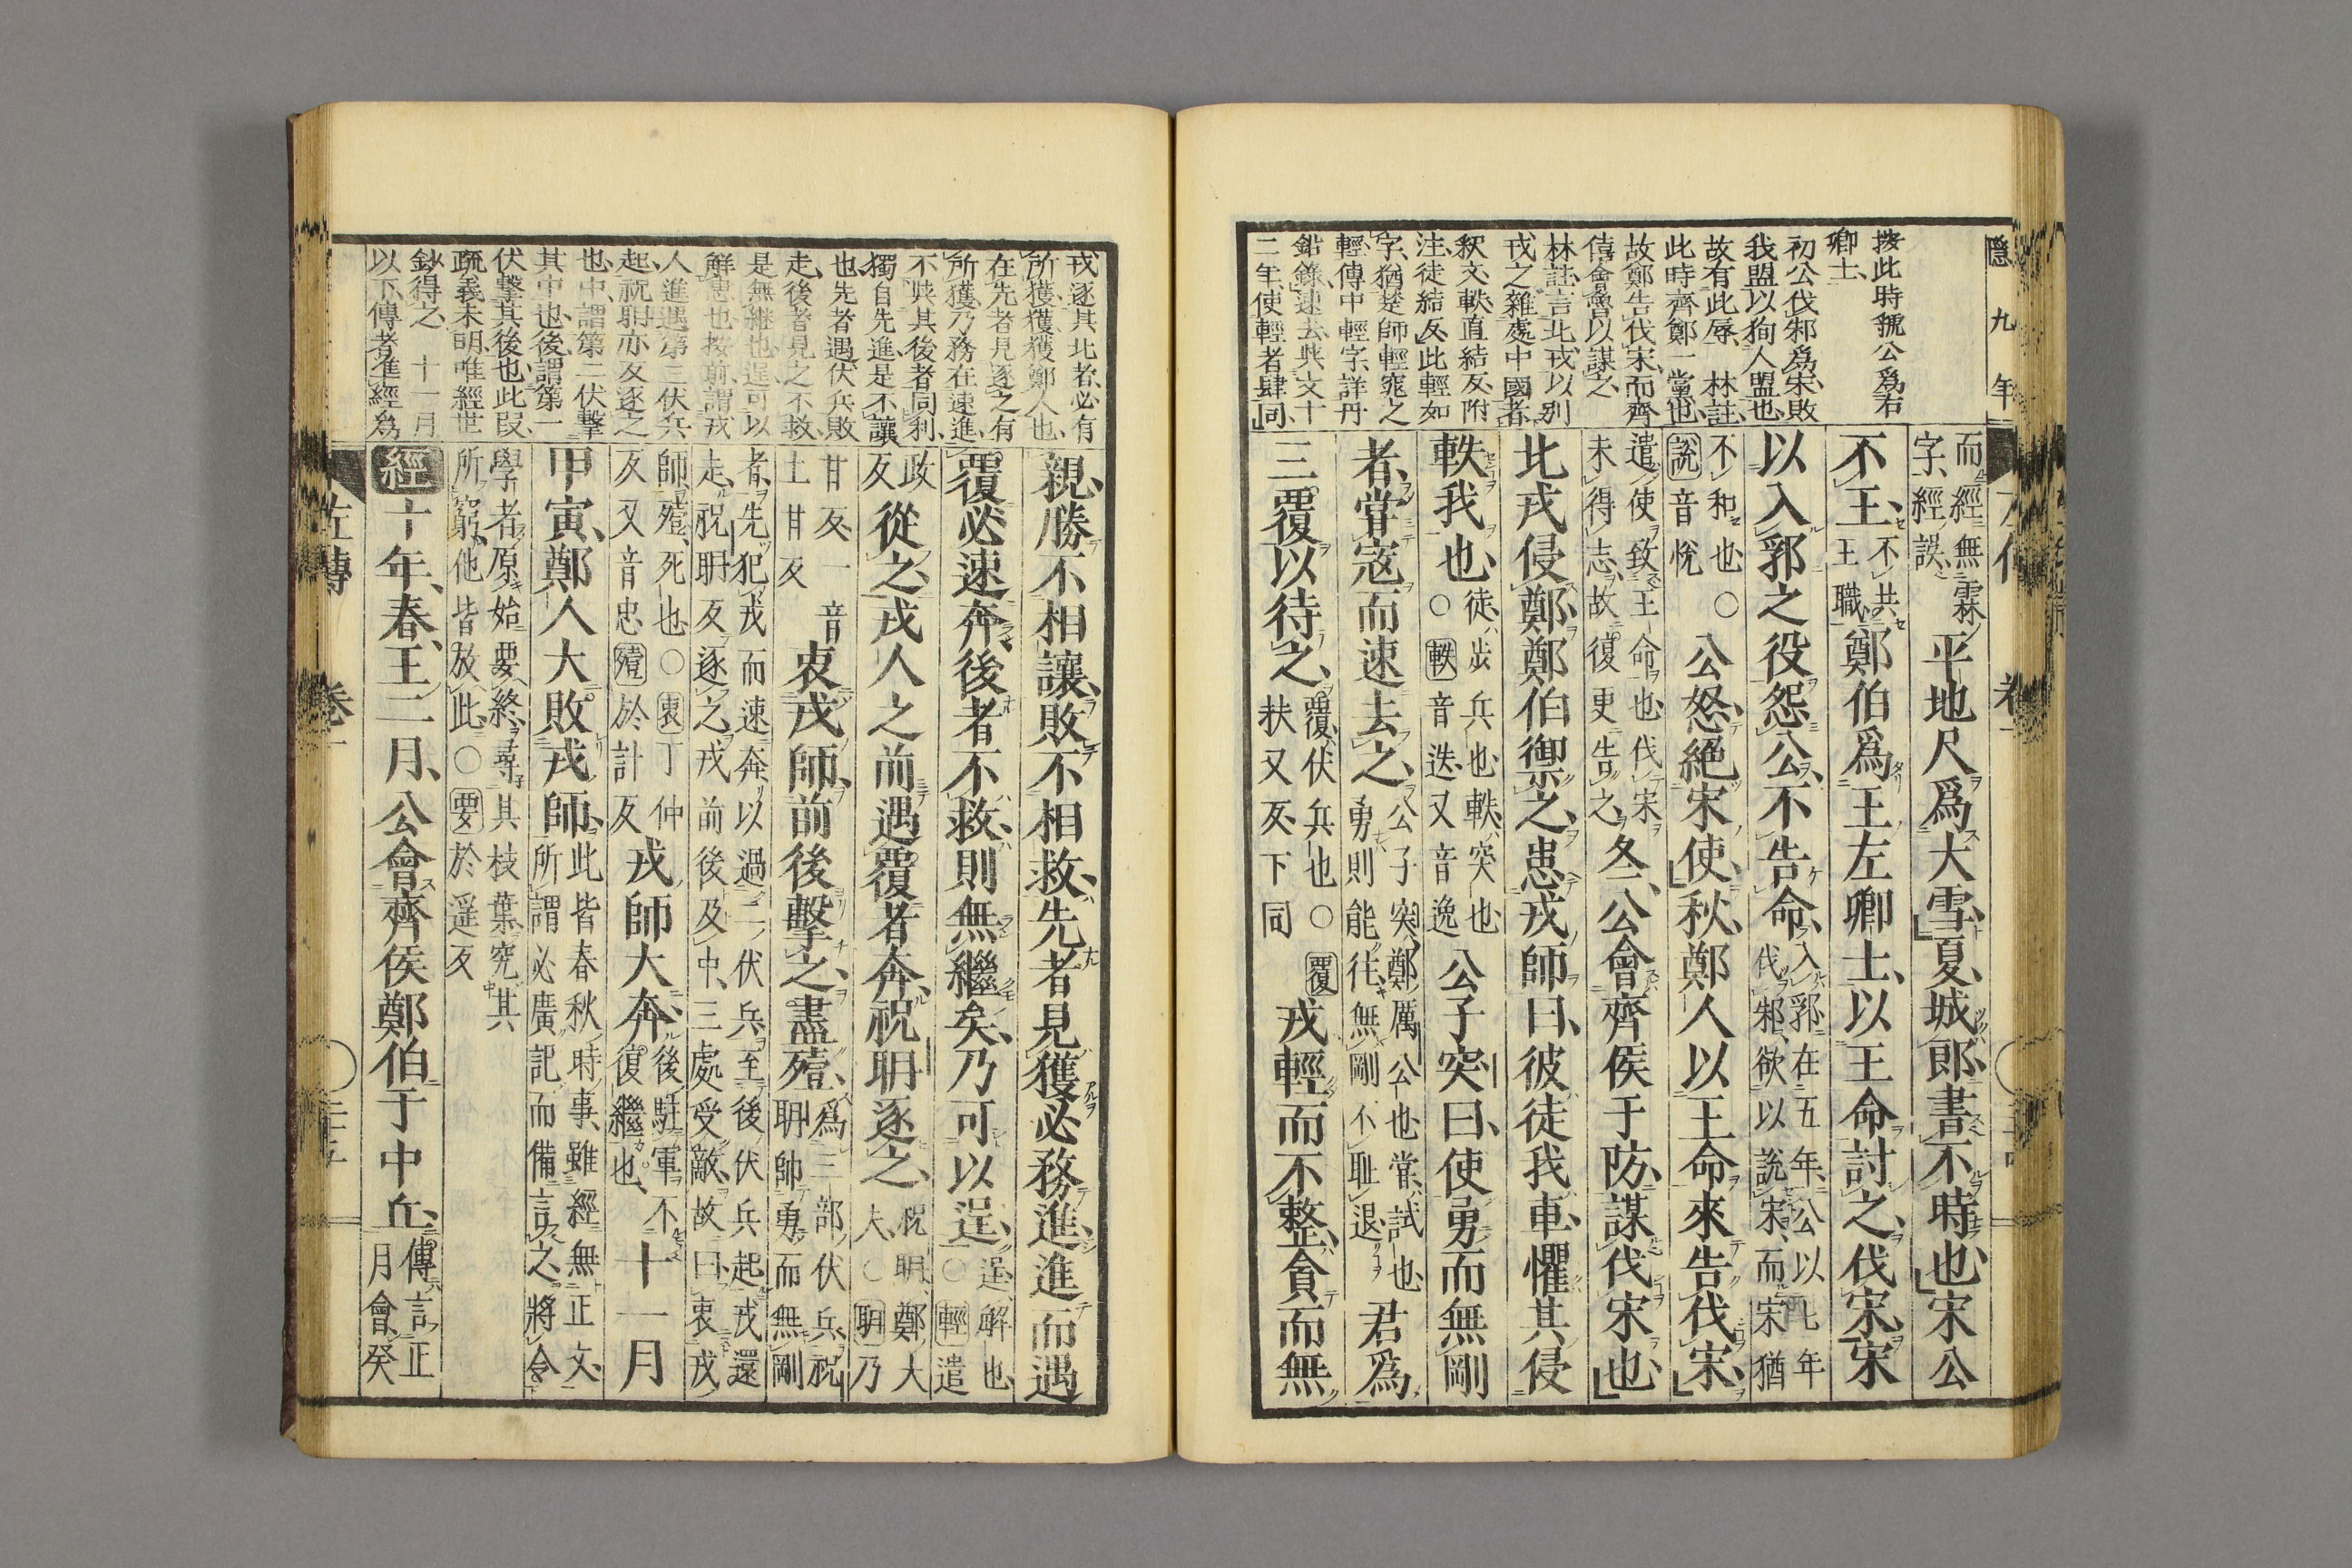 隱九年
按此時虢公爲右
卿士
初公伐邾爲宋敗
我盟以狥人盟也
故有此辱　林註
此時齊鄭一黨也
故鄭告伐宋而齊
僖會魯以謀之
林註言北戎以別
戎之雜處中國者
釈文軼直結反附
注徒結反此輕如
字猶楚師輕窕之
輕傳中輕字詳丹
鉛錄速去與文十
二年使輕者肆同
而經無霖
字經誤
平地尺爲大雪夏城郎書不時也宋公
不王
不共
王職
鄭伯爲王左卿士以王命討之伐宋宋
以入郛之役怨公不告命
入郛在五年公以七年
伐邾欲以說宋而宋猶
不和也○
說音悅
公怒絕宋使秋鄭人以王命來告伐宋
遣使致王命也伐宋
未得志故復更告之
冬公會齊侯于防謀伐宋也
北戎侵鄭鄭伯禦之患戎師曰彼徒我車懼其侵
軼我也
徒步兵也軼突也
○軼音迭又音逸
公子突曰使勇而無剛
者嘗寇而速去之
公子突鄭厲公也嘗試也
勇則能往無剛不耻退
君爲
三覆以待之
覆伏兵也○覆
扶又反下同
戎輕而不整貪而無
戎逐其北者必有
所獲獲獲鄭人也
在先者見逐之有
所獲乃務在速進
不與其後者同利
獨自先進是不讓
也先者遇伏兵敗
走後者見之不救
是無繼也逞可以
解患也按前謂戎
人進遇第三伏兵
起祝聃亦反逐之
也中謂第二伏擊
其中也後謂第一
伏擊其後也此段
疏義未明唯經世
鈔得之　十一月
以下傳者準經爲
親勝不相讓敗不相救先者見獲必務進進而遇
覆必速奔後者不救則無繼矣乃可以逞
逞解也
○輕遣
政
反
從之戎人之前遇覆者奔祝聃逐之
祝聃鄭大
夫○聃乃
甘反一音
土甘反
衷戎師前後擊之盡殪
爲三部伏兵祝
聃帥勇而無剛
者先犯戎而速奔以過二伏兵至後伏兵起戎還
走祝聃反逐之戎前後及中三處受敵故曰衷戎
師殪死也○衷丁仲
反又音忠殪於計反
戎師大奔
後駐軍不
復繼也
十一月
甲寅鄭人大敗戎師
此皆春秋時事雖經無正文
所謂必廣記而備言之將令
學者原始要終尋其枝葉究其
所窮他皆放此○要於遥反
經十年春王二月公會齊侯鄭伯于中丘
傳言正
月會癸
左傳　卷一